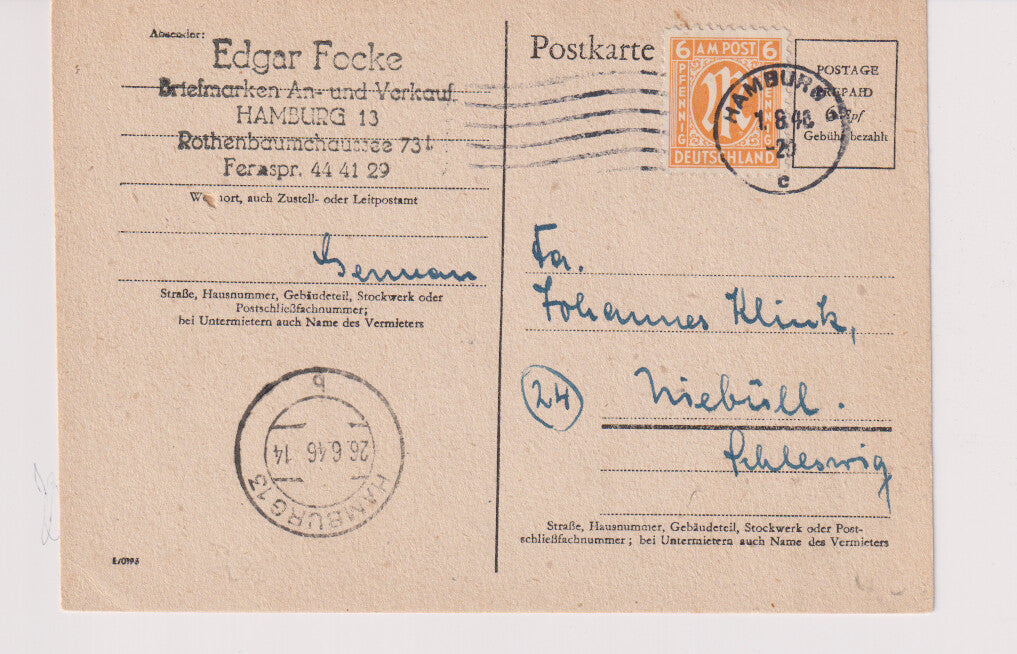 Absender:
Edgar Focke
Briefmarken An- und Verkauf
HAMBURG 13
Rothenbaumchaussee 73 I
Fernspr. 44 41 29
Wohnort, auch Zustell- oder Leitpostamt
German
Straße, Hausnummer, Gebäudeteil, Stockwerk oder
Postschließfachnummer;
bei Untermietern auch Name des Vermieters
b
26.6.46 14
HAMBURG 13
E/0193
Postkarte
6 AM POST 6
PFENNIG
M
PFENNIG
DEUTSCHLAND
HAMBURG
1.8.46
c
POSTAGE
PREPAID
6 Rpf
Gebühr bezahlt
Fa.
Johannes Klink,
24
Niebüll.
Schleswig
Straße, Hausnummer, Gebäudeteil, Stockwerk oder Post-
schließfachnummer; bei Untermietern auch Name des Vermieters